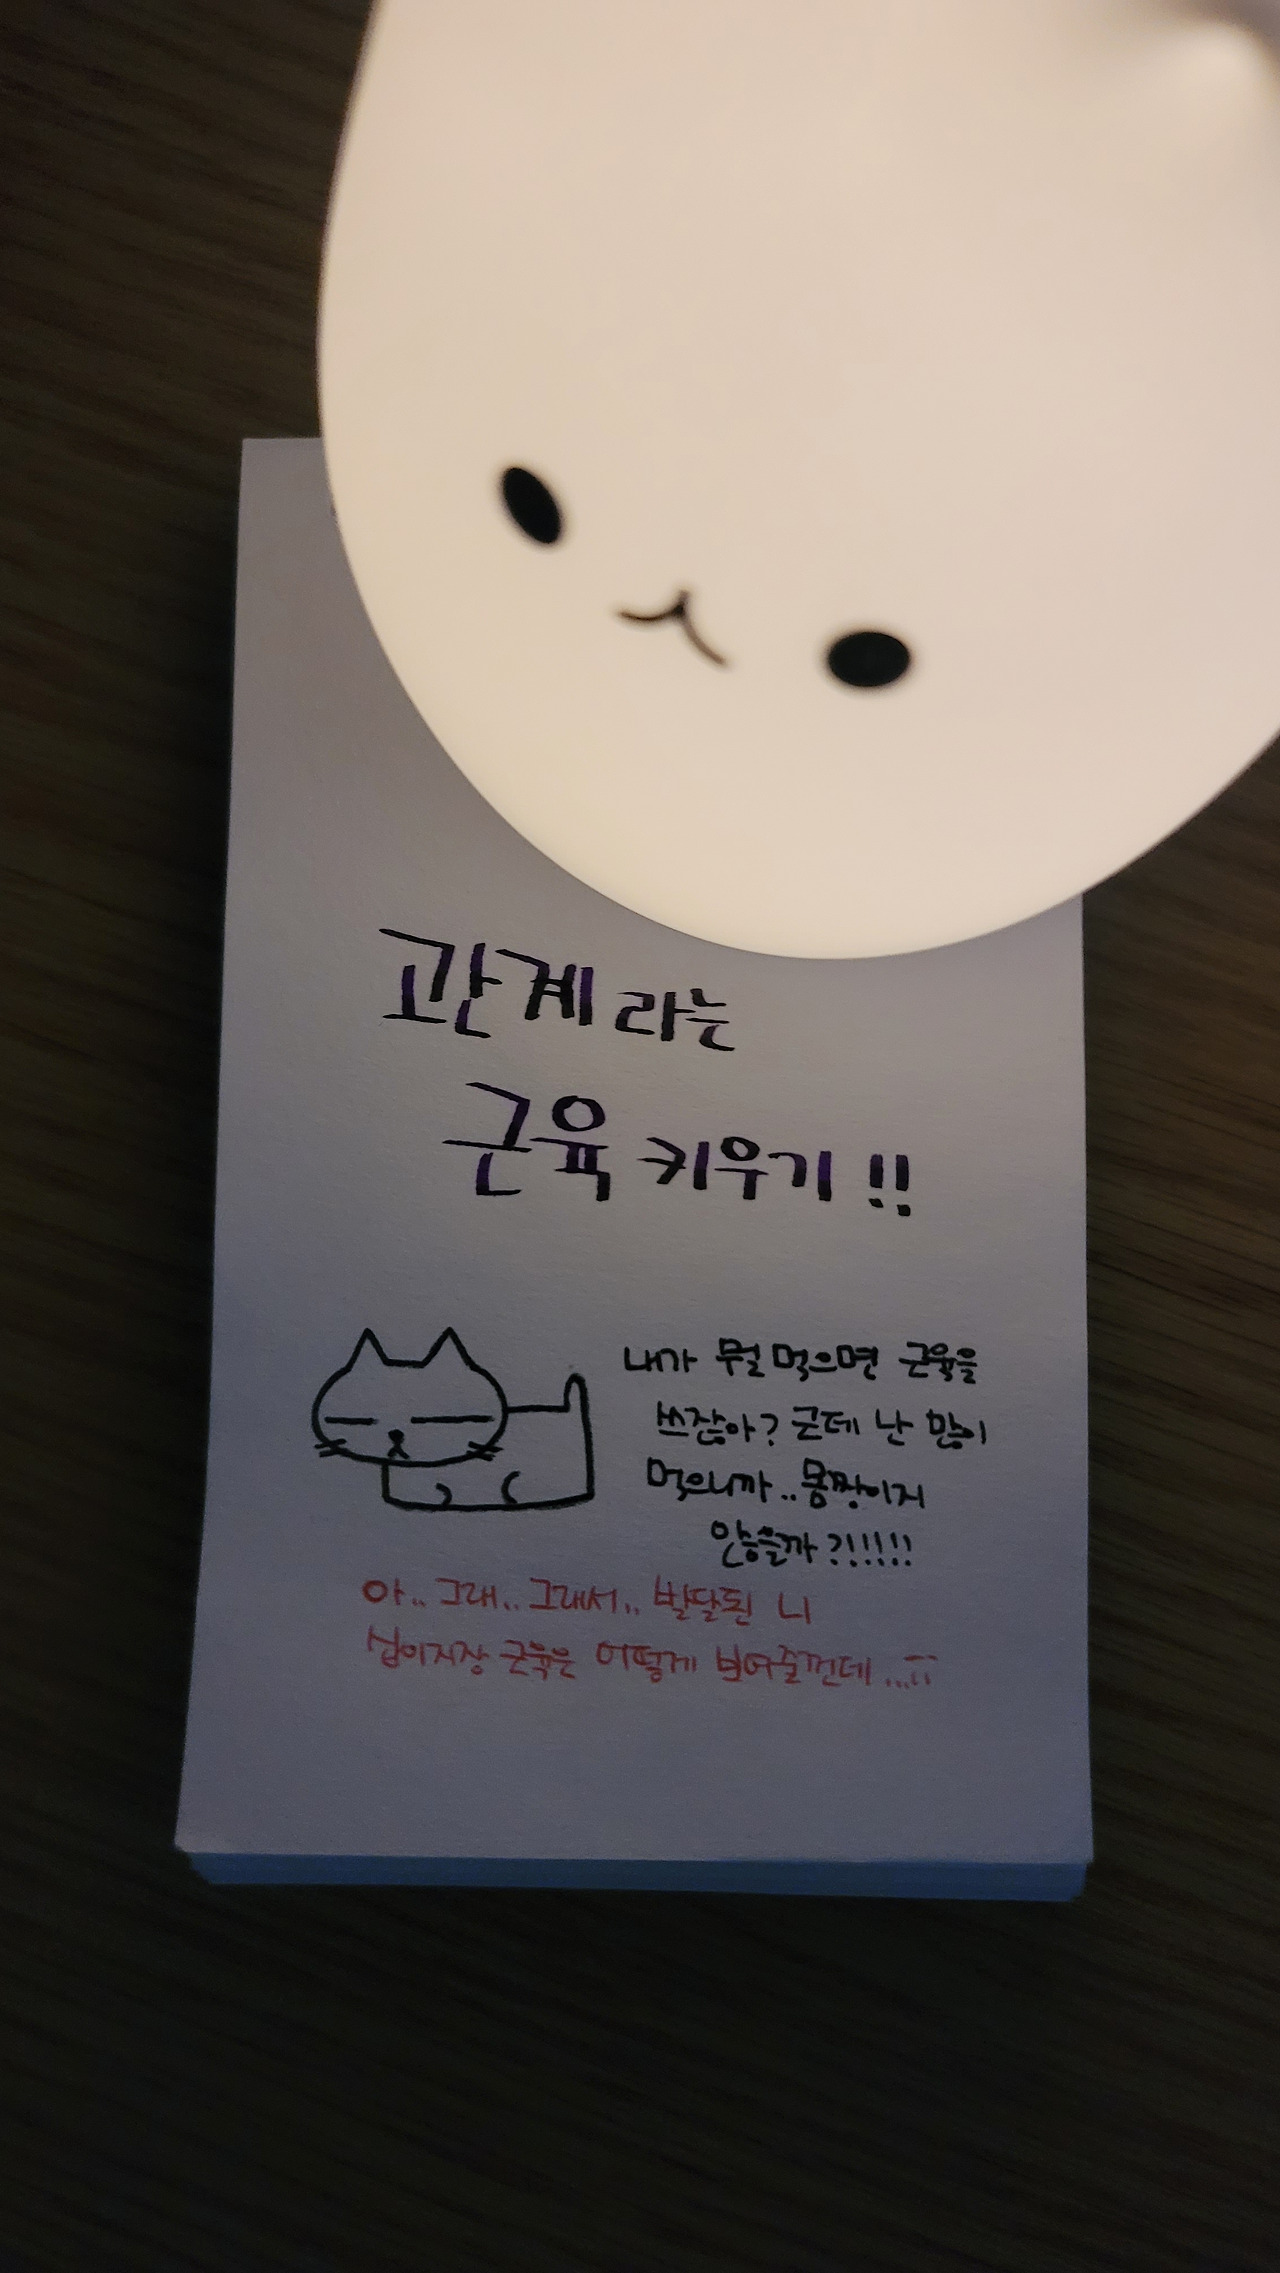 관계라는
근육 키우기!!
내가 뭘 먹으면 근육을
쓰잖아? 근데 난 많이
먹으니까.. 몸짱이지
않을까?!!!!!
아.. 그래.. 그래서.. 발달된 니
십이지장 근육은 어떻게 보여줄껀데...;;